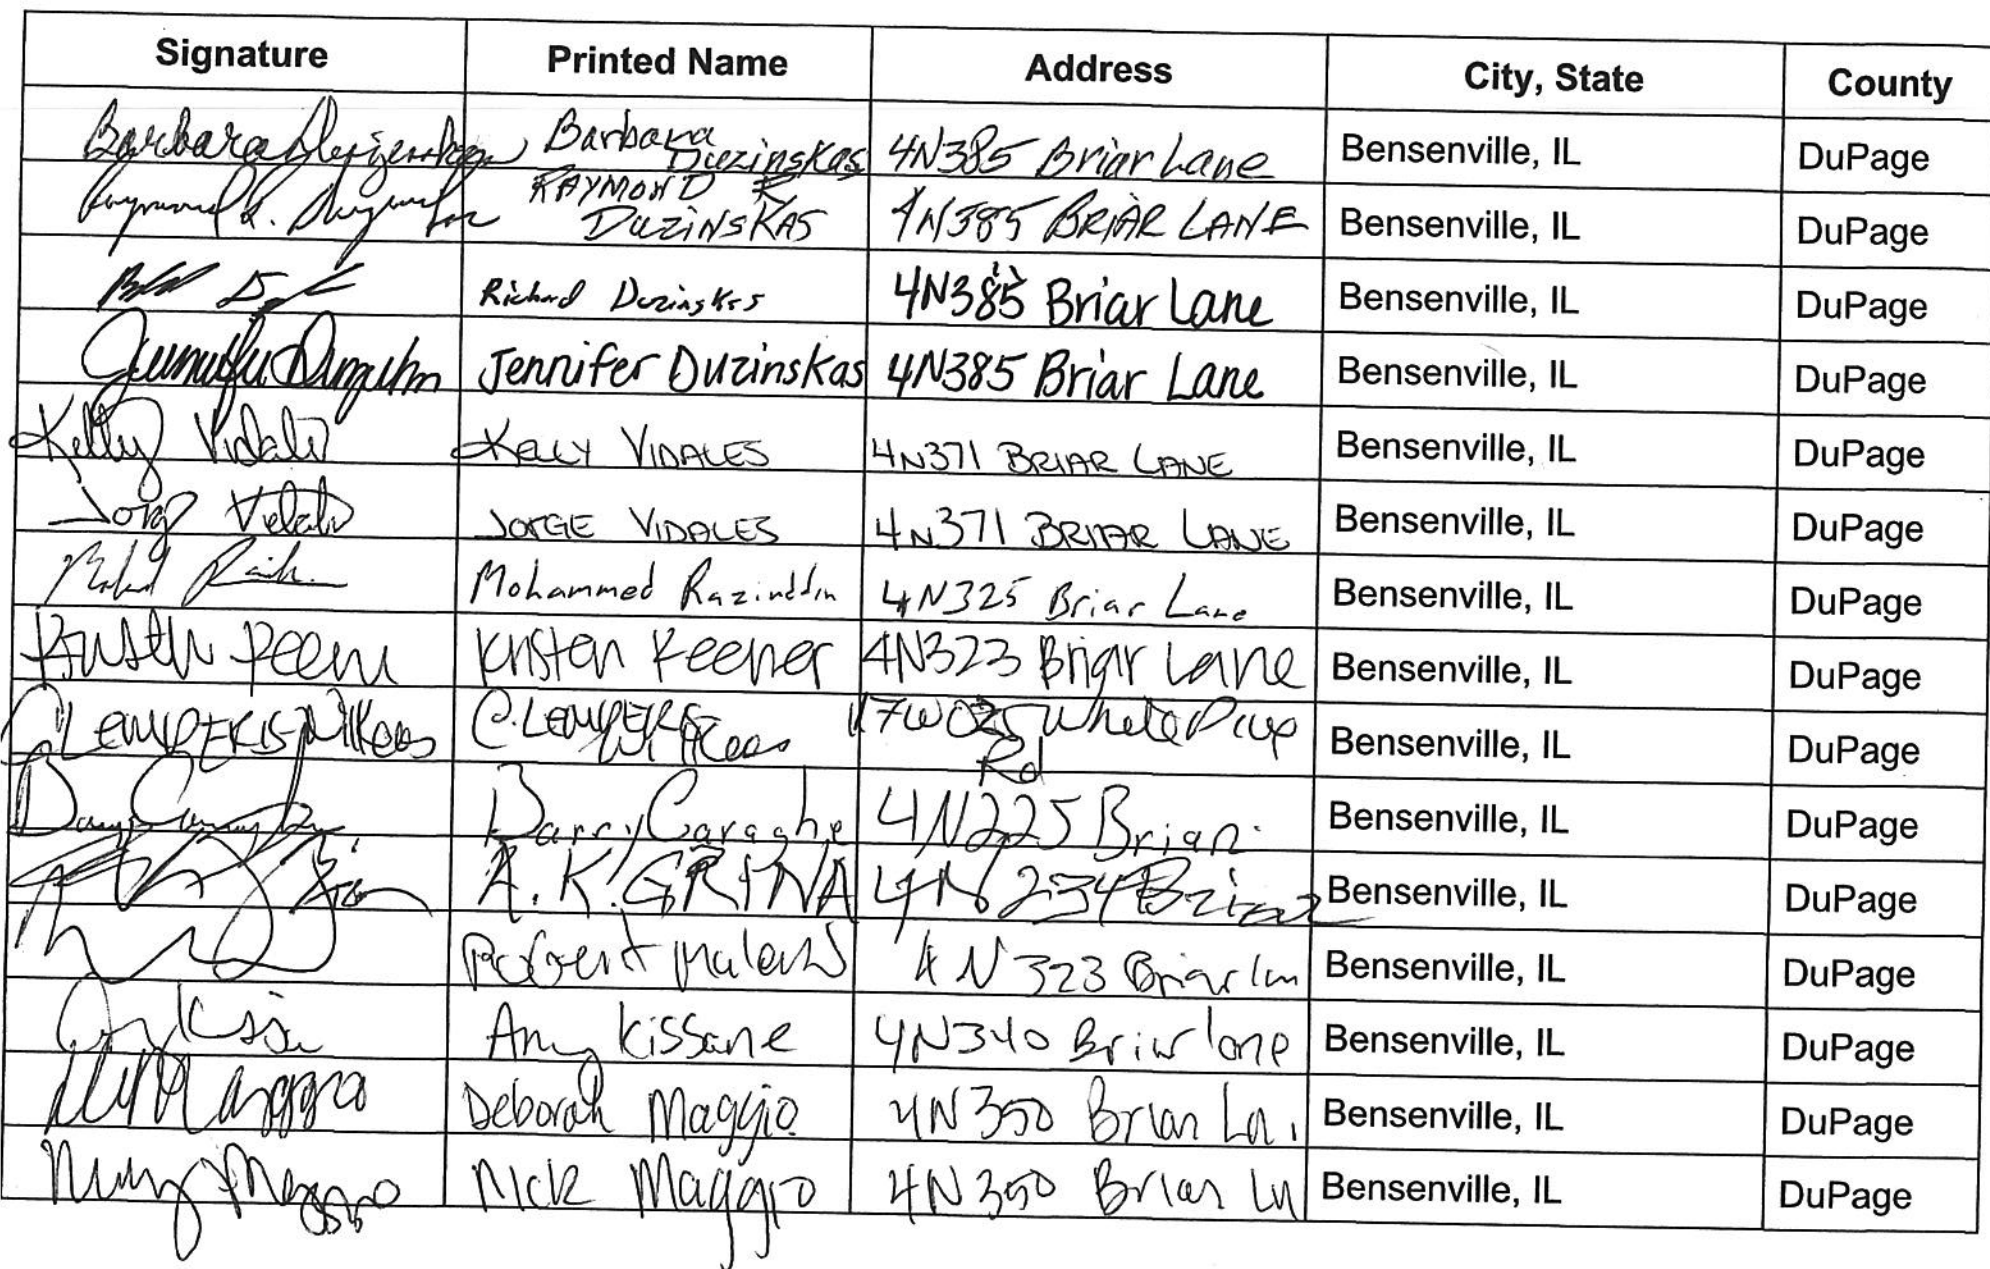 Signature Printed Name Address City, State County
Barbara Duzinskas Barbara Duzinskas 4N385 Briar Lane Bensenville, IL DuPage
Raymond R. Duzinskas RAYMOND R DUZINSKAS 4N385 BRIAR LANE Bensenville, IL DuPage
Richard Duzinskas 4N385 Briar Lane Bensenville, IL DuPage
Jennifer Duzinskas Jennifer Duzinskas 4N385 Briar Lane Bensenville, IL DuPage
Kelly Vidales KELLY VIDALES 4N371 BRIAR LANE Bensenville, IL DuPage
Jorge Vidales JORGE VIDALES 4N371 BRIAR LANE Bensenville, IL DuPage
Mohammed Raziuddin 4N325 Briar Lane Bensenville, IL DuPage
Kristen Keener Kristen Keener 4N323 Briar Lane Bensenville, IL DuPage
C LEMPEKIS-Wilkens C. LEMPEKIS Wilkens 17W025 White Pine Rd Bensenville, IL DuPage
Barry Caraghe 4N225 Briar Bensenville, IL DuPage
A.K. 4N234 Briar Bensenville, IL DuPage
Robert 4N323 Briar Ln Bensenville, IL DuPage
Amy Kissane 4N340 Briar lane Bensenville, IL DuPage
Maggio Deborah Maggio 4N350 Briar Ln. Bensenville, IL DuPage
Maggio Nick Maggio 4N350 Briar Ln Bensenville, IL DuPage